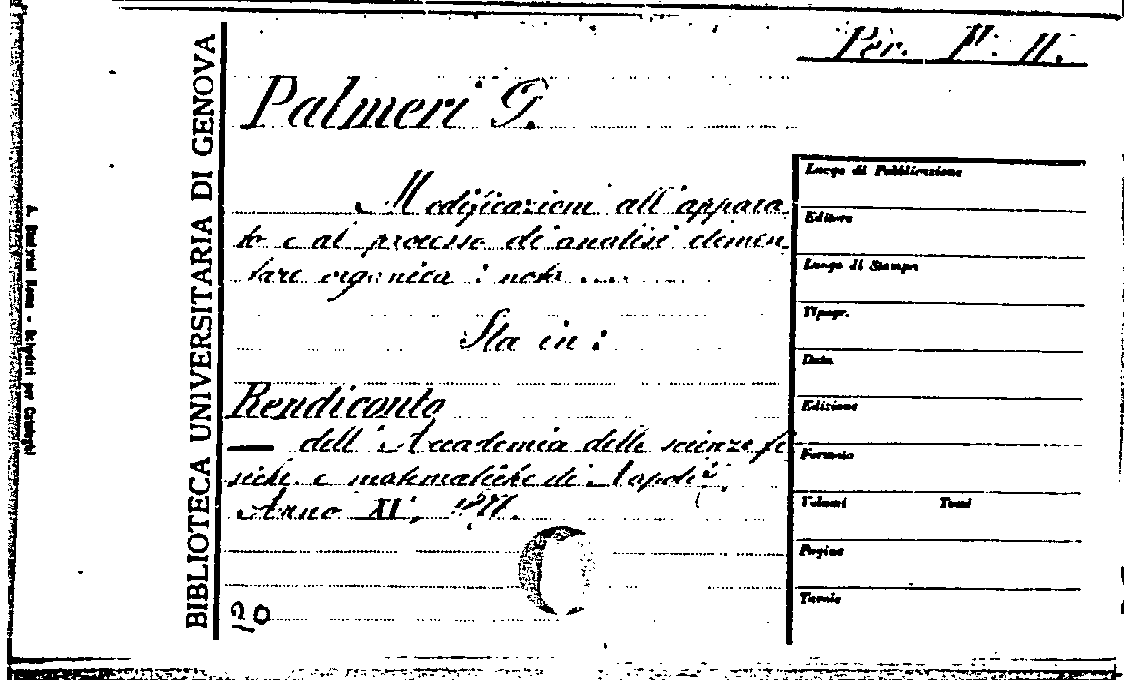 Per. F. 11.
BIBLIOTECA UNIVERSITARIA DI GENOVA
Palmeri G.
Modificazioni all'appara
to e al processo di analisi elemen
tare organica : nota ....
Sta in :
Rendiconto
— dell'Accademia delle scienze fi
siche e matematiche di Napoli,
Anno XI,
20
Luogo di Pubblicazione
Editore
Luogo di Stampa
Tipogr.
Data
Edizione
Formato
Volumi Tomi
Pagine
Tavole
Roma - per Cataloghi